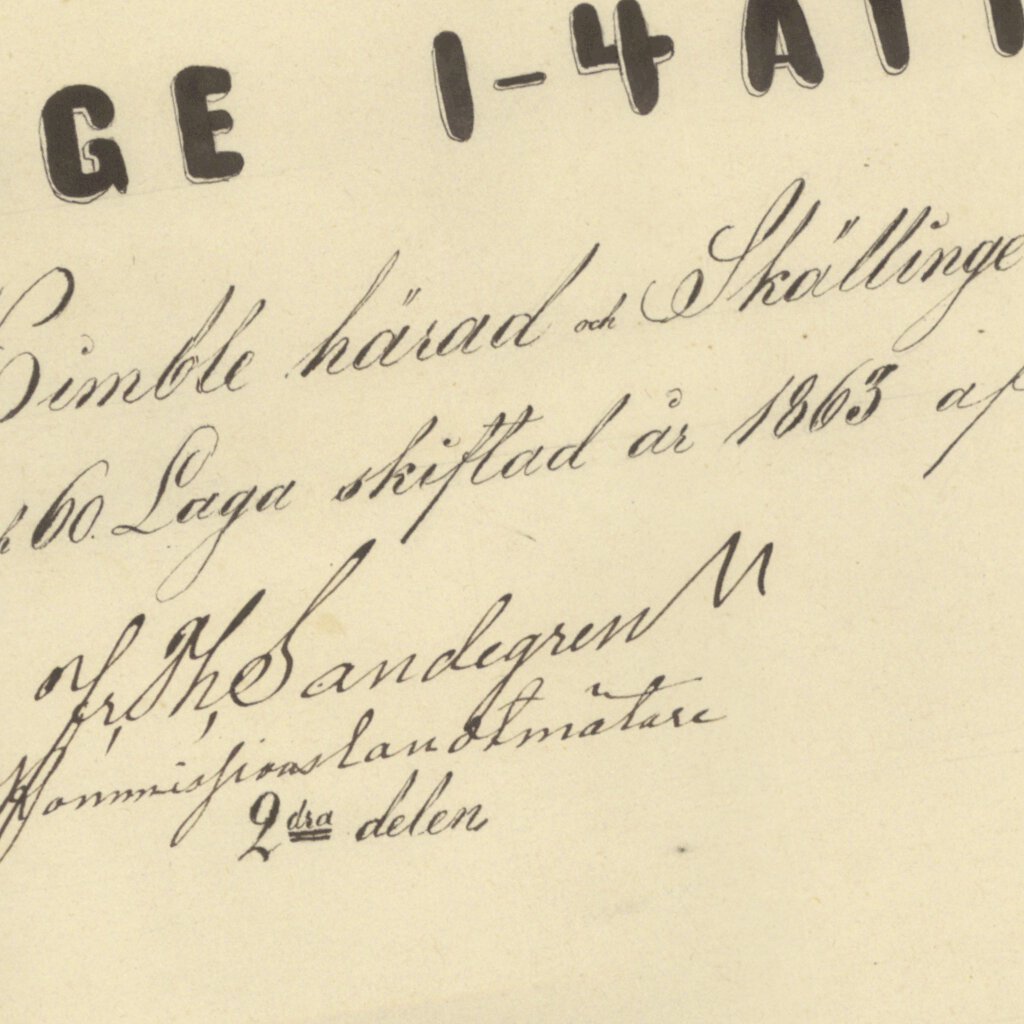 GE 1-4 ATT
Himble härad och Skällinge
60. Laga skiftad år 1863 af
Fr. Th. Sandegren
Kommissionslandtmätare
2dra delen